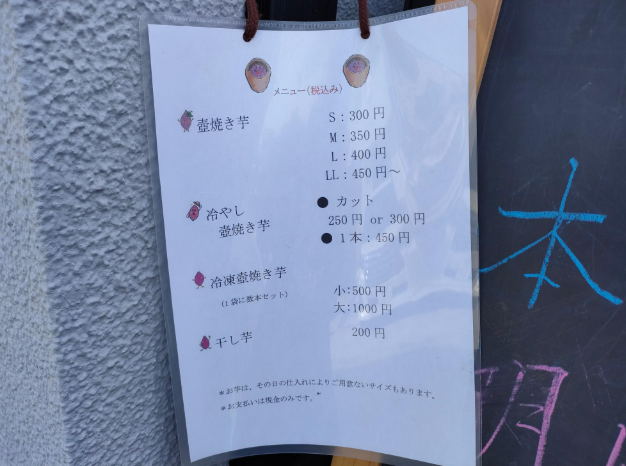 メニュー(税込み)
壺焼き芋 S:300円
M:350円
L:400円
LL:450円〜
冷やし
壺焼き芋
● カット
250円 or 300円
● 1本:450円
冷凍壺焼き芋
(1袋に数本セット)
小:500円
大:1000円
干し芋 200円
*お芋は、その日の仕入れによりご用意ないサイズもあります。
*お支払いは現金のみです。*
本